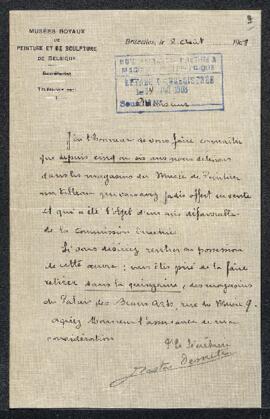 MUSÉES ROYAUX
DE
PEINTURE ET DE SCULPTURE
DE BELGIQUE
Secrétariat
Bruxelles, le 2 août 190
Monsieur
J'ai l'honneur de vous faire connaître
que depuis cinq ou six ans nous détenons
dans les magasins du Musée de Peinture
un tableau que vous avez jadis offert en vente
et qui a été l'objet d'un avis défavorable
de la commission
Si vous désirez rentrer en possession
de cette œuvre, vous êtes prié de la faire
retirer dans la quinzaine, des magasins
du Palais des Beaux Arts, rue du Musée 9.
Agréez Monsieur l'assurance de ma
considération